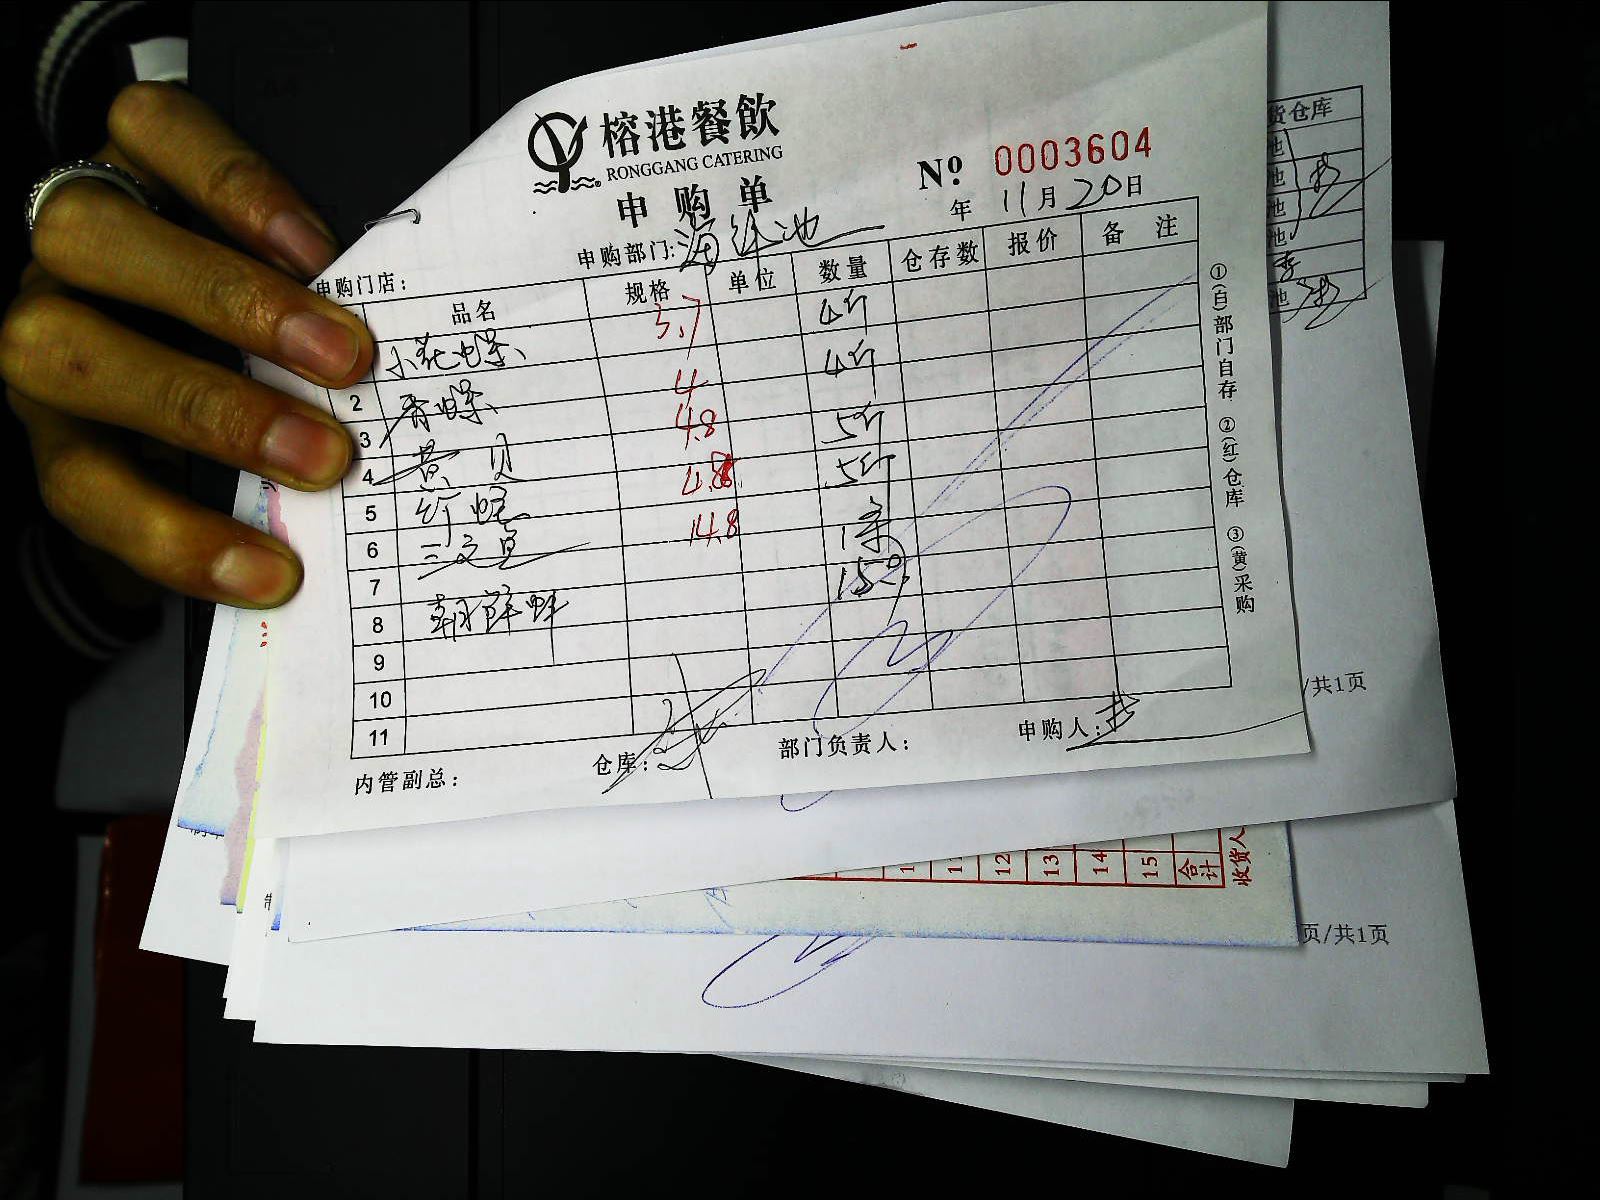 榕港餐飲
RONGGANG CATERING
申购单
Nº 0003604
年 11月20日
申购门店：
申购部门：海鲜池
品名 规格 单位 数量 仓存数 报价 备注
小花螺 3.7 4斤
2 香螺 4 4斤
3 黄贝 4.8 5斤
4 4.8 5斤
5 三文鱼 14.8 1条
6
7 朝鲜蚌 15只
8
9
10
11
①(白)部门自存 ②(红)仓库 ③(黄)采购
内管副总： 仓库： 部门负责人： 申购人：
货仓库
池
池
池
池
池
/共1页
12 13 14 15 合计
收货人
页/共1页